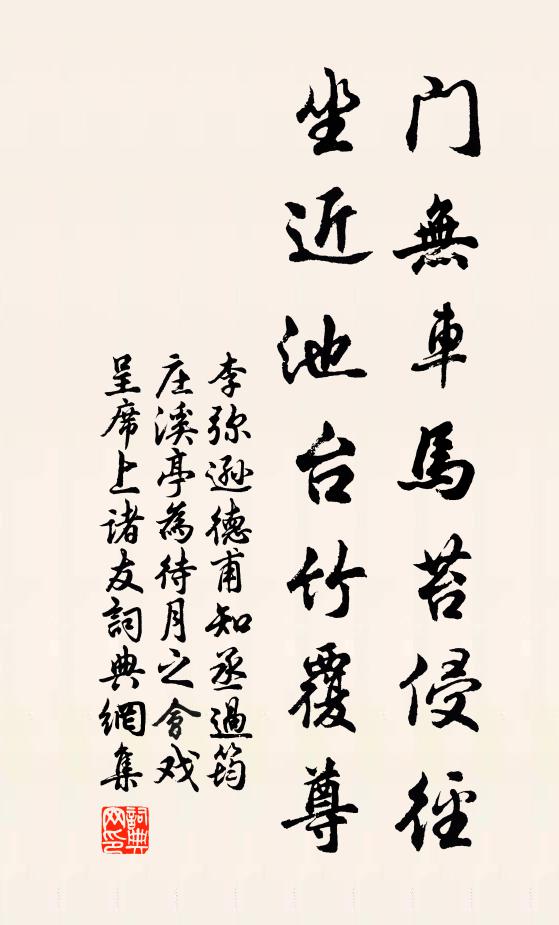 门無車馬苔侵徑
坐近池台竹覆尊
李弥遜德甫知丞過筠
庄溪亭為待月之會戏
呈席上诸友詞典網集
詞典
网印